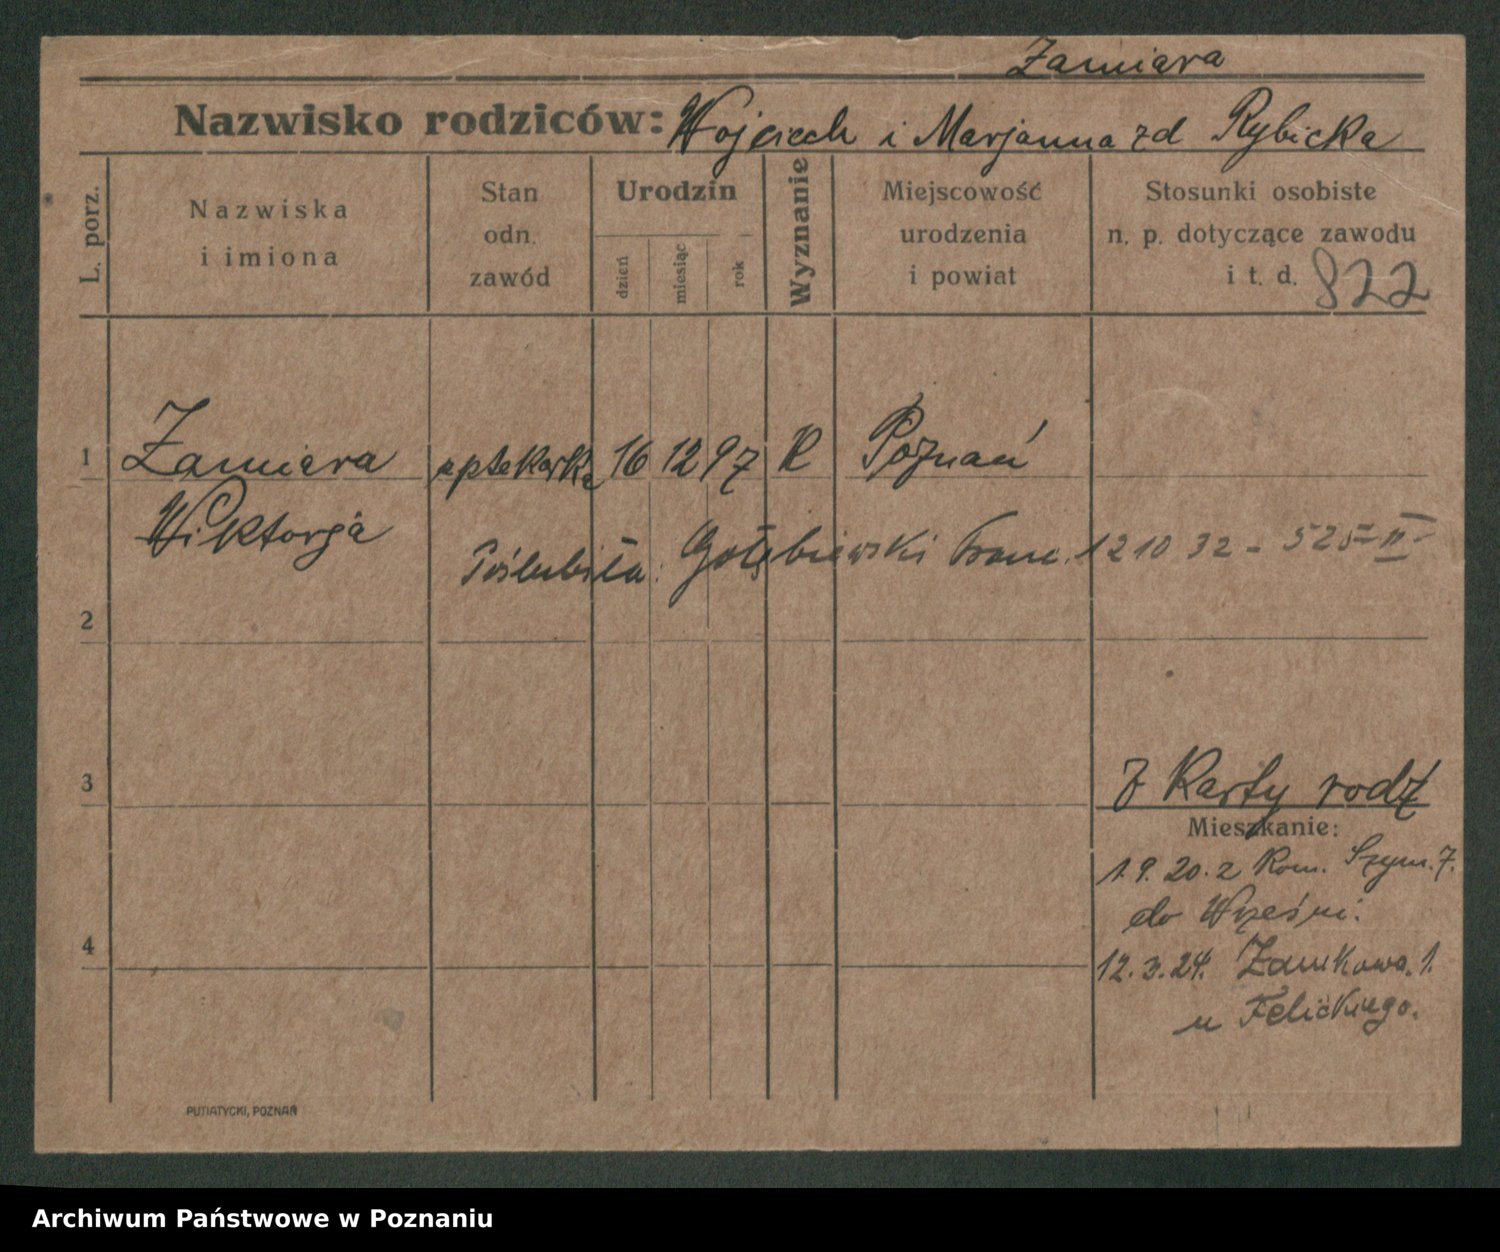 Zamiara
Nazwisko rodziców: Wojciech i Marjanna zd Rybicka
L. porz.
Nazwiska
i imiona
Stan
odn.
zawód
Urodzin
dzień
miesiąc
rok
Wyznanie
Miejscowość
urodzenia
i powiat
Stosunki osobiste
n. p. dotyczące zawodu
i t. d. 822
1 Zamiara aptekarka 16 12 97 R Poznań
Wiktorja
Poślubiła: Gołębiewski Franc. 12 10 32 - 525 II
2
3
Z Karty rodz
Mieszkanie:
1.9.20. z Rom. Szym. 7.
do Wrześni.
4
12.3.24. Zamkowa. 1.
u Felickiego.
PUTIATYCKI, POZNAŃ
Archiwum Państwowe w Poznaniu